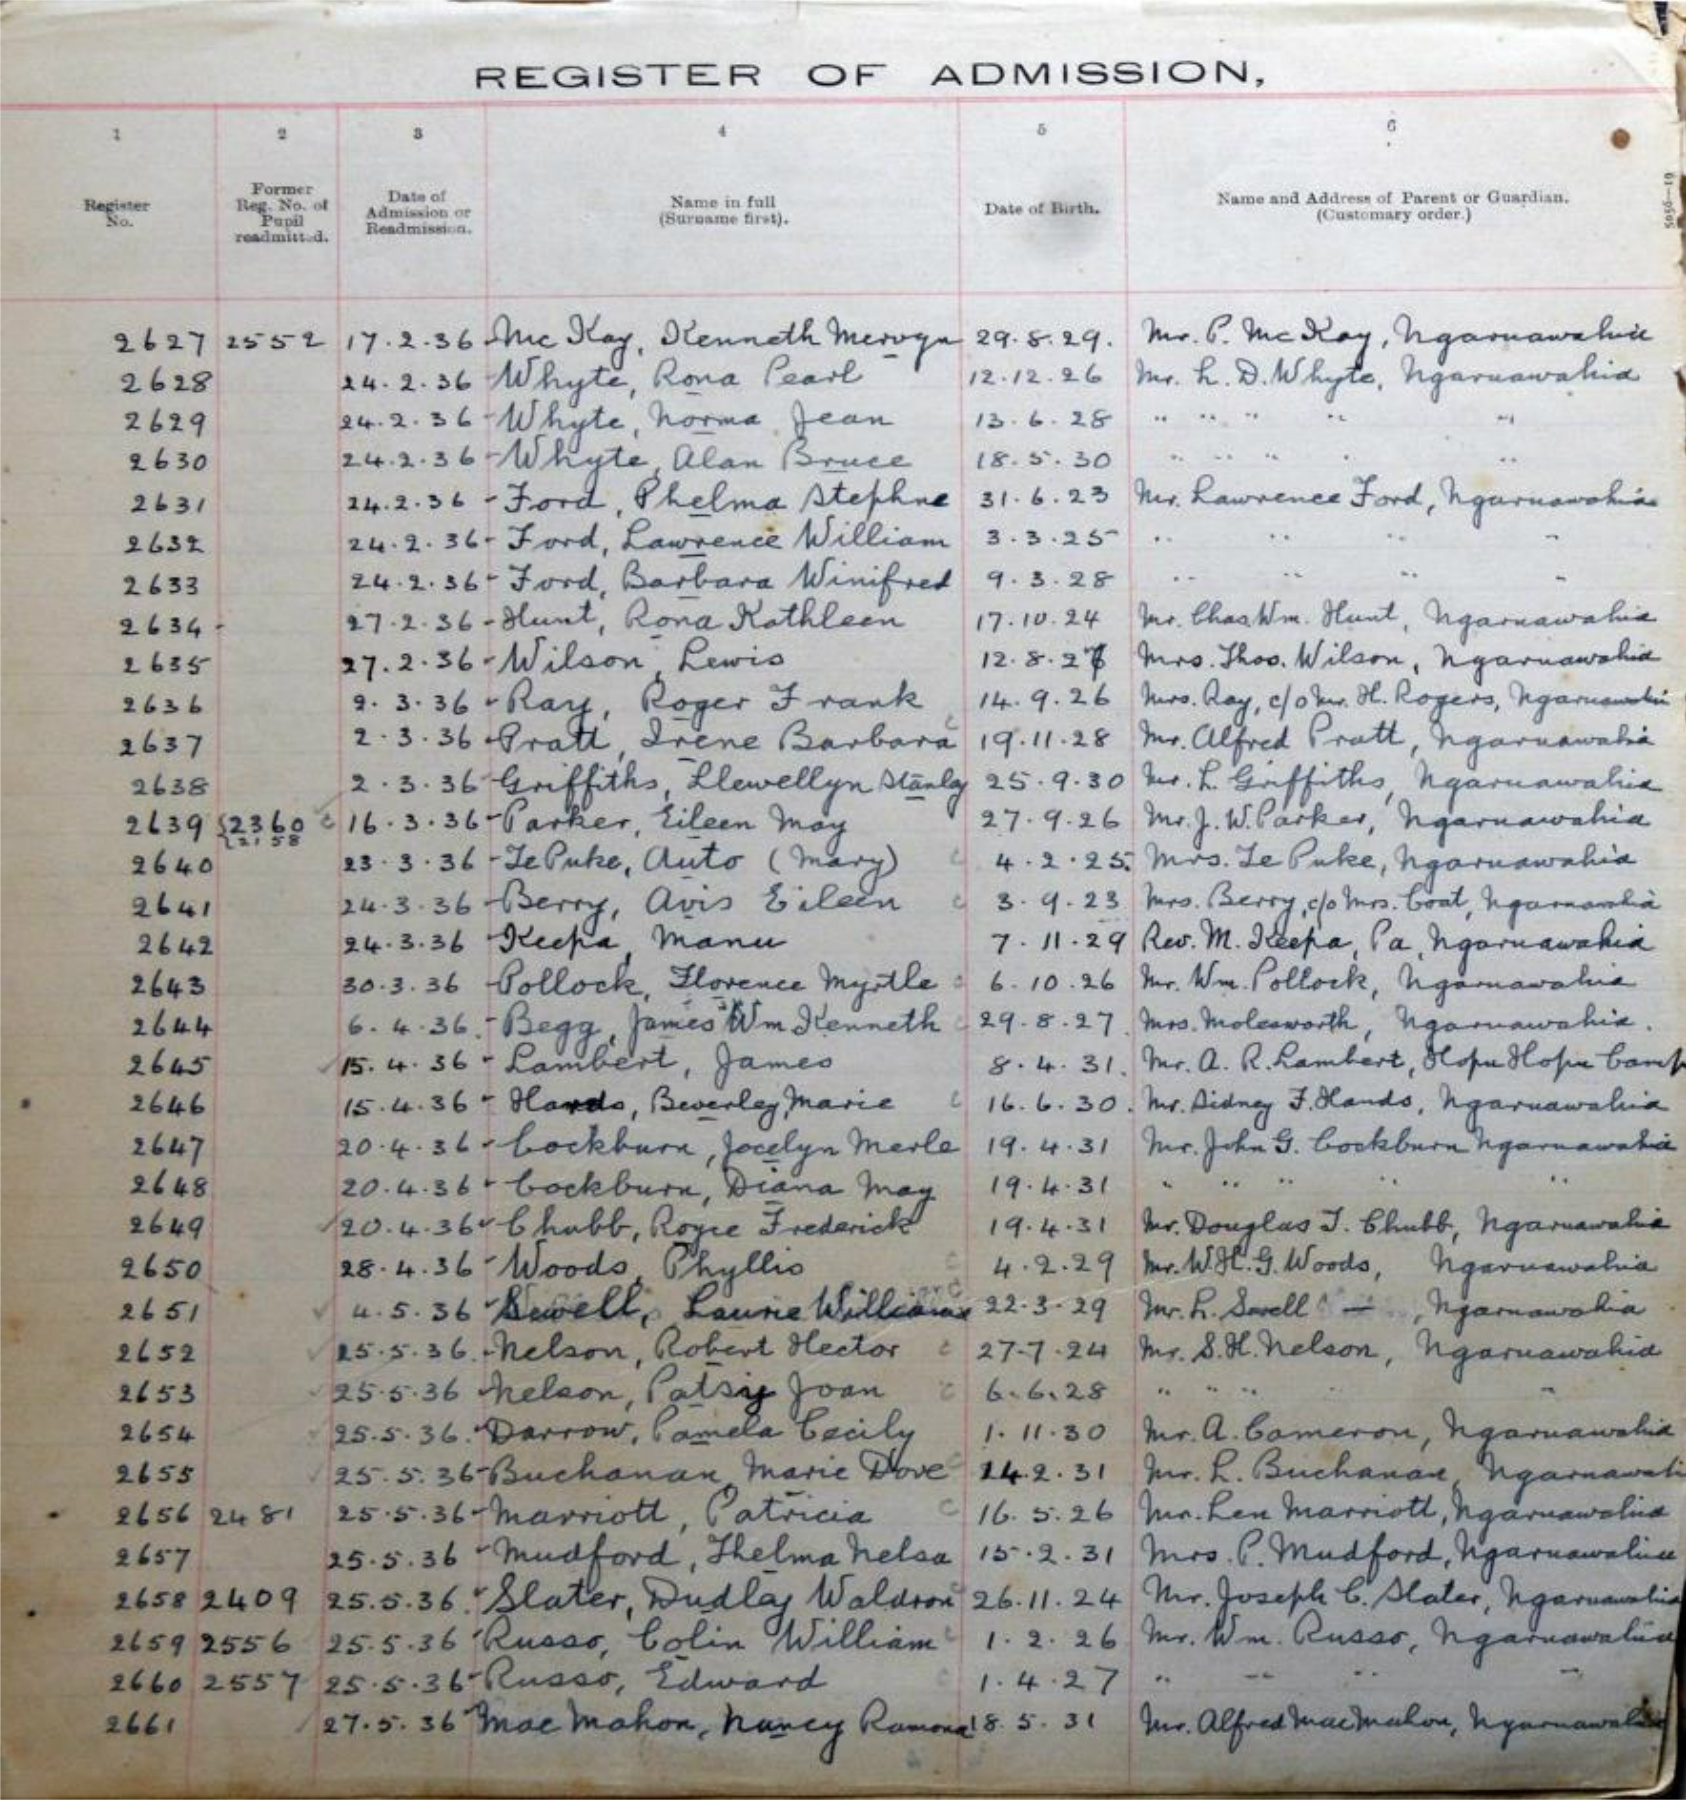 REGISTER OF ADMISSION,
1 2 3 4 5 6
Register No. Former Reg. No. of Pupil readmitted. Date of Admission or Readmission. Name in full (Surname first). Date of Birth. Name and Address of Parent or Guardian. (Customary order.)
5056—19
2627 2552 17.2.36 Mc Kay, Kenneth Mervyn 29.8.29. Mr. P. Mc Kay, Ngaruawahia
2628 24.2.36 - Whyte, Rona Pearl 12.12.26 Mr. L. D. Whyte, Ngaruawahia
2629 24.2.36 - Whyte, Norma Jean 13.6.28 " " " " "
2630 24.2.36 - Whyte, Alan Bruce 18.5.30 " " " " "
2631 24.2.36 - Ford, Thelma Stephne 31.6.23 Mr. Lawrence Ford, Ngaruawahia
2632 24.2.36 - Ford, Lawrence William 3.3.25 " " " "
2633 24.2.36 - Ford, Barbara Winifred 9.3.28 " " " "
2634 - 27.2.36 - Hunt, Rona Kathleen 17.10.24 Mr. Chas. Wm. Hunt, Ngaruawahia
2635 27.2.36 - Wilson, Lewis 12.8.2 Mrs. Thos. Wilson, Ngaruawahia
2636 9.3.36 - Ray, Roger Frank 14.9.26 Mrs. Ray, c/o Mr. H. Rogers, Ngaruawahia
2637 2.3.36 - Pratt, Irene Barbara 19.11.28 Mr. Alfred Pratt, Ngaruawahia
2638 2.3.36 - Griffiths, Llewellyn Stanley 25.9.30 Mr. L. Griffiths, Ngaruawahia
2639 {2360 2158 c 16.3.36 - Parker, Eileen May 27.9.26 Mr. J. W. Parker, Ngaruawahia
2640 23.3.36 - Te Puke, Auto (Mary) c 4.2.25. Mrs. Te Puke, Ngaruawahia
2641 24.3.36 - Berry, Avis Eileen c 3.9.23 Mrs. Berry, c/o Mrs. Coat, Ngaruawahia
2642 24.3.36 - Keepa, Manu 7.11.29 Rev. M. Keepa, Pa, Ngaruawahia
2643 30.3.36 - Pollock, Florence Myrtle c 6.10.26 Mr. Wm. Pollock, Ngaruawahia
2644 6.4.36. - Begg, James Wm Kenneth c 29.8.27. Mrs. Molesworth, Ngaruawahia.
2645 ✓ 15.4.36 - Lambert, James 8.4.31. Mr. A. R. Lambert, Hopu Hopu Camp
2646 15.4.36 - Hands, Beverley Marie c 16.6.30. Mr. Sidney F. Hands, Ngaruawahia
2647 20.4.36 - Cockburn, Jocelyn Merle 19.4.31 Mr. John G. Cockburn Ngaruawahia
2648 20.4.36 - Cockburn, Diana May 19.4.31 " " " " "
2649 ✓ 20.4.36 - Chubb, Royce Frederick 19.4.31 Mr. Douglas T. Chubb, Ngaruawahia
2650 28.4.36 - Woods, Phyllis c 4.2.29 Mr. W. H. G. Woods, Ngaruawahia
2651 ✓ 4.5.36 - Sewell, Laurie William 22.3.29 Mr. L. Sewell —, Ngaruawahia
2652 ✓ 25.5.36. - Nelson, Robert Hector c 27-7-24 Mr. S. H. Nelson, Ngaruawahia
2653 ✓ 25.5.36 Nelson, Patsy Joan c 6.6.28 " " " " "
2654 25.5.36. - Darrow, Pamela Cecily 1.11.30 Mr. A. Cameron, Ngaruawahia
2655 ✓ 25.5.36 - Buchanan, Marie Dove c 14.2.31 Mr. L. Buchanan, Ngaruawahi
2656 2481 25.5.36 - Marriott, Patricia c 16.5.26 Mr. Len Marriott, Ngaruawahia
2657 25.5.36 - Mudford, Thelma Nelsa 15.2.31 Mrs. P. Mudford, Ngaruawahia
2658 2409 25.5.36. - Slater, Dudley Waldron c 26.11.24 Mr. Joseph C. Slater, Ngaruawahia
2659 2556 25.5.36 - Russo, Colin William c 1.2.26 Mr. Wm. Russo, Ngaruawahia
2660 2557 25.5.36 - Russo, Edward c 1.4.27 " " " "
2661 27.5.36 - Mac Mahon, Nancy Ramona 18.5.31 Mr. Alfred MacMahon, Ngaruawahia